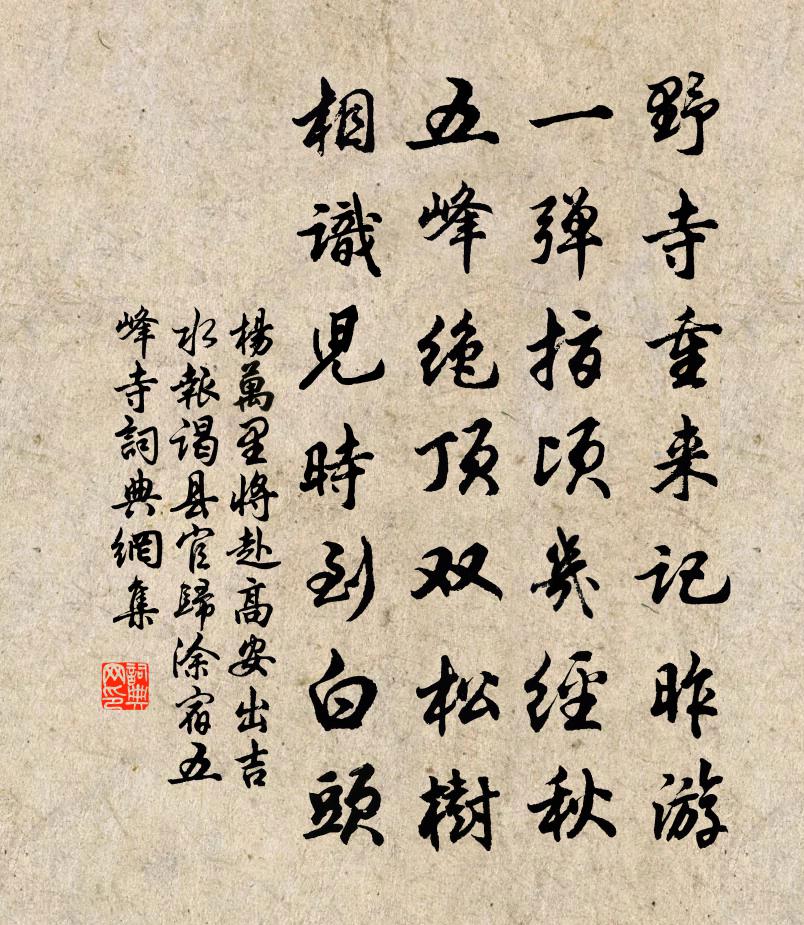 野寺重来记昨游
一弹指顷幾经秋
五峰绝顶双松樹
相識児時到白頭
楊萬里將赴高安出吉
水報谒县官歸涂宿五
峰寺詞典網集
詞典网印